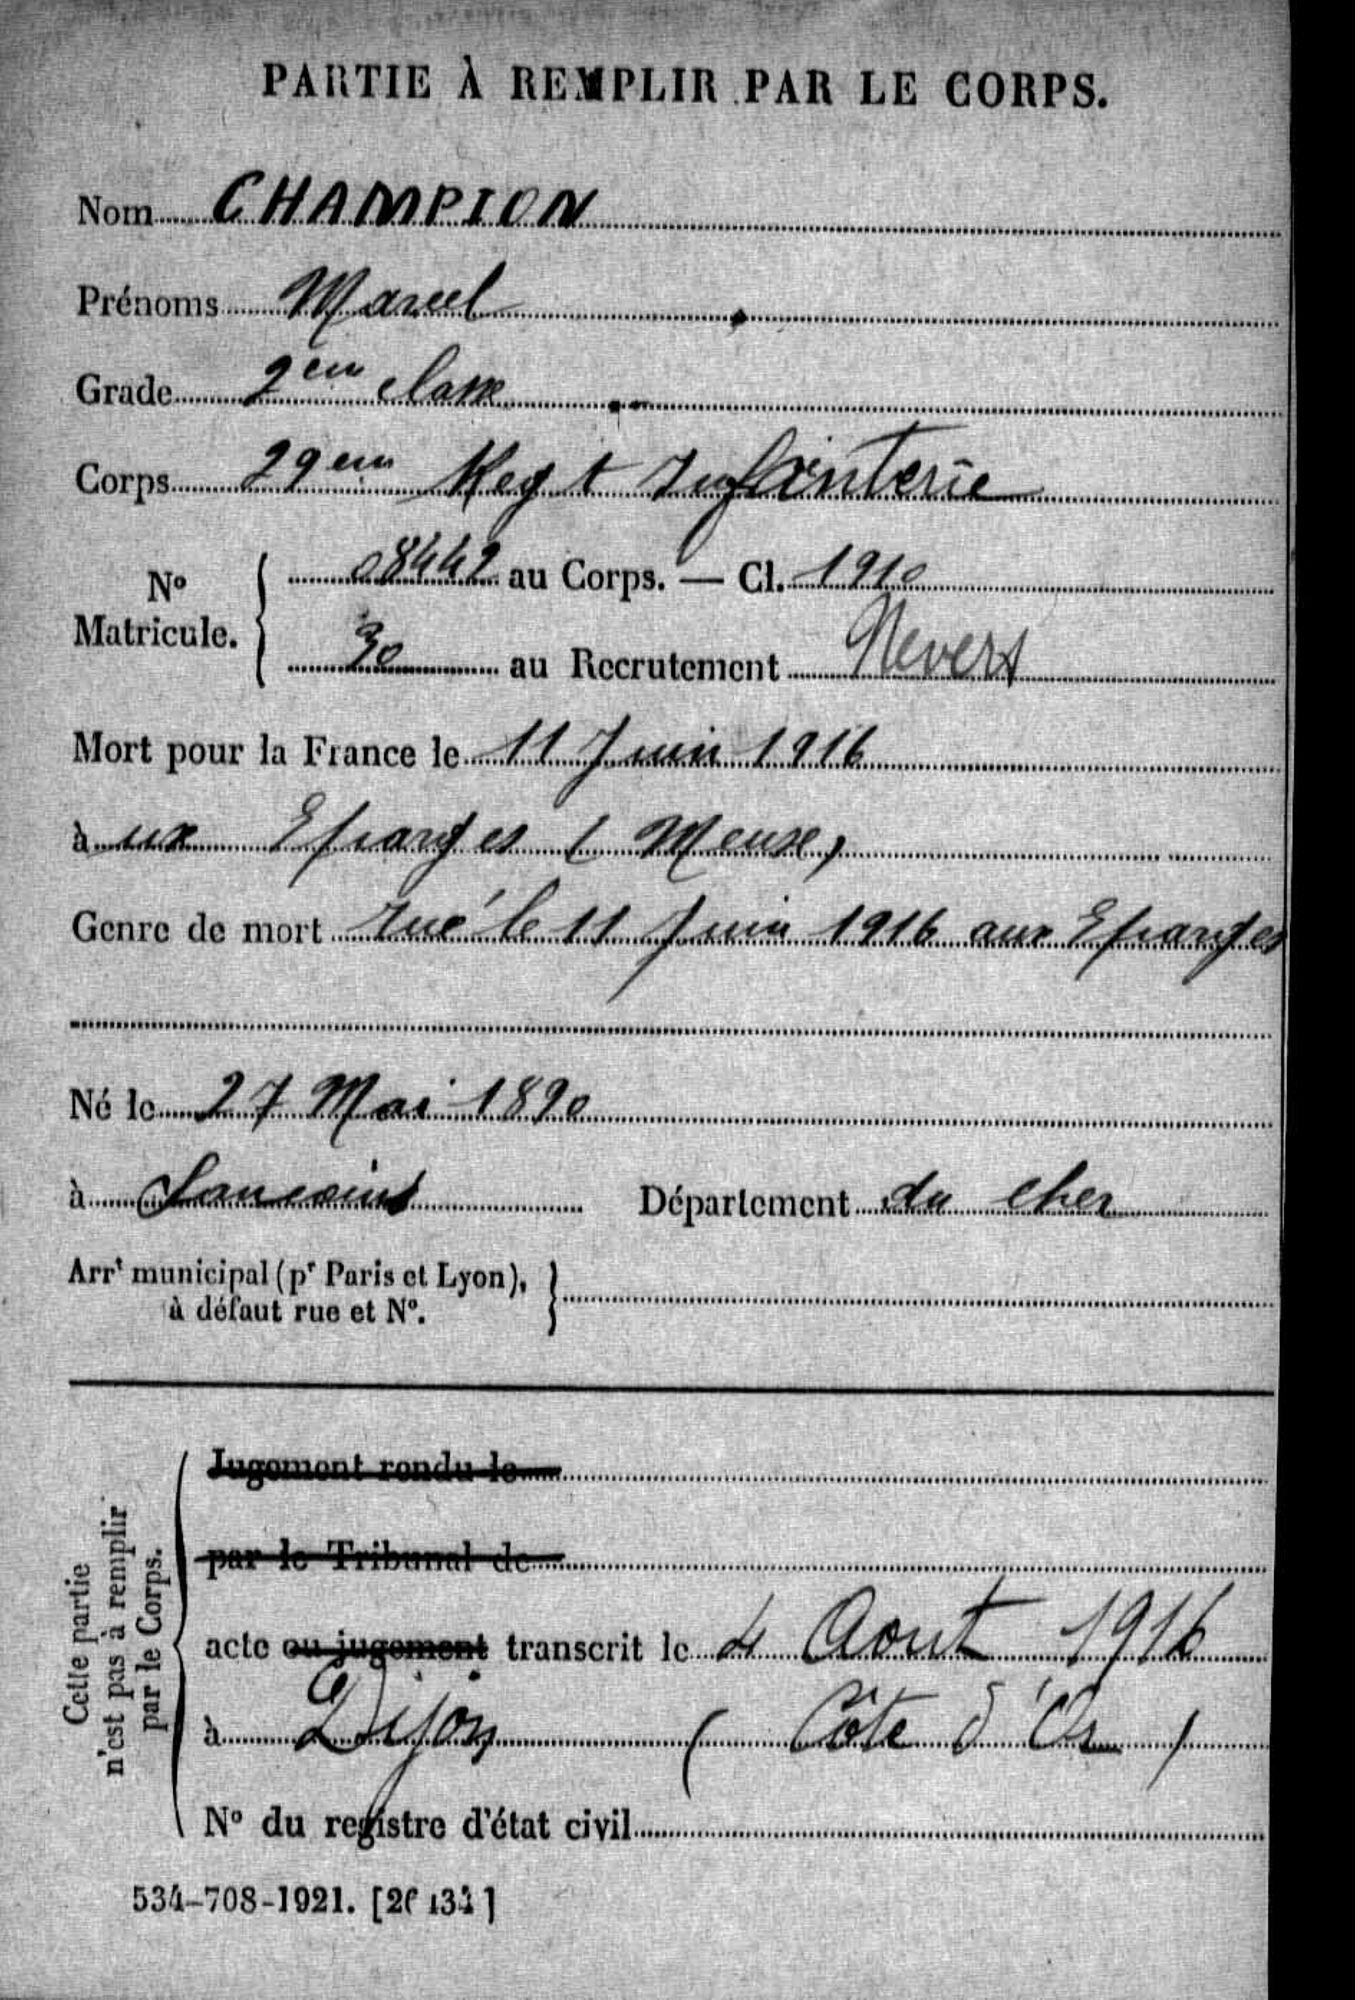 PARTIE À REMPLIR PAR LE CORPS.
Nom CHAMPION
Prénoms Marcel
Grade 2em classe
Corps 29em Regt Infanterie
No Matricule. { 08442 au Corps. — Cl. 1910
30 au Recrutement Nevers
Mort pour la France le 11 Juin 1916
à ux Eparges (Meuse)
Genre de mort tué le 11 Juin 1916 aux Eparges
Né le 27 Mai 1890
à Sancoins Département du Cher
Arrt municipal (pr Paris et Lyon), }
à défaut rue et No.
Cette partie
n'est pas à remplir
par le Corps.
Jugement rendu le
par le Tribunal de
acte ou jugement transcrit le 4 Aout 1916
à Dijon (Côte d'Or)
No du registre d'état civil
534-708-1921.